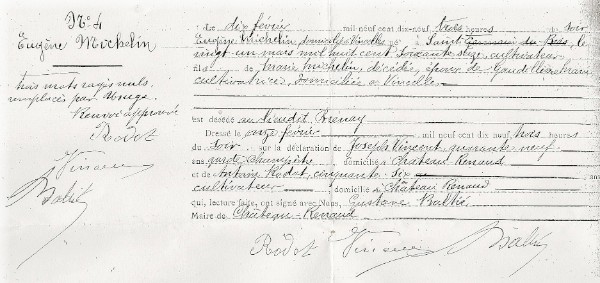 N° 4
Eugène Michelin
trois mots rayés nuls,
remplacés par
Renvoi approuvé
Rodot
Vincent
Le dix février mil neuf cent dix-neuf trois heures du soir
Eugène Michelin, né à Saint Germain du Bois, le
vingt un mars mil huit cent soixante seize, cultivateur,
fils de Marie Michelin, décédée, époux de
cultivatrice, domiciliée à Vincelle
est décédé au lieudit
Dressé le onze février mil neuf cent dix neuf, trois heures
du soir, sur la déclaration de Joseph Vincent, quarante neuf
ans, garde champêtre domicilié à Chateau Renaud
et de Antoine Rodot, cinquante six
cultivateur domicilié à Château Renaud
qui, lecture faite, ont signé avec Nous, Gustave
Maire de Château-Renaud
Rodot Vincent